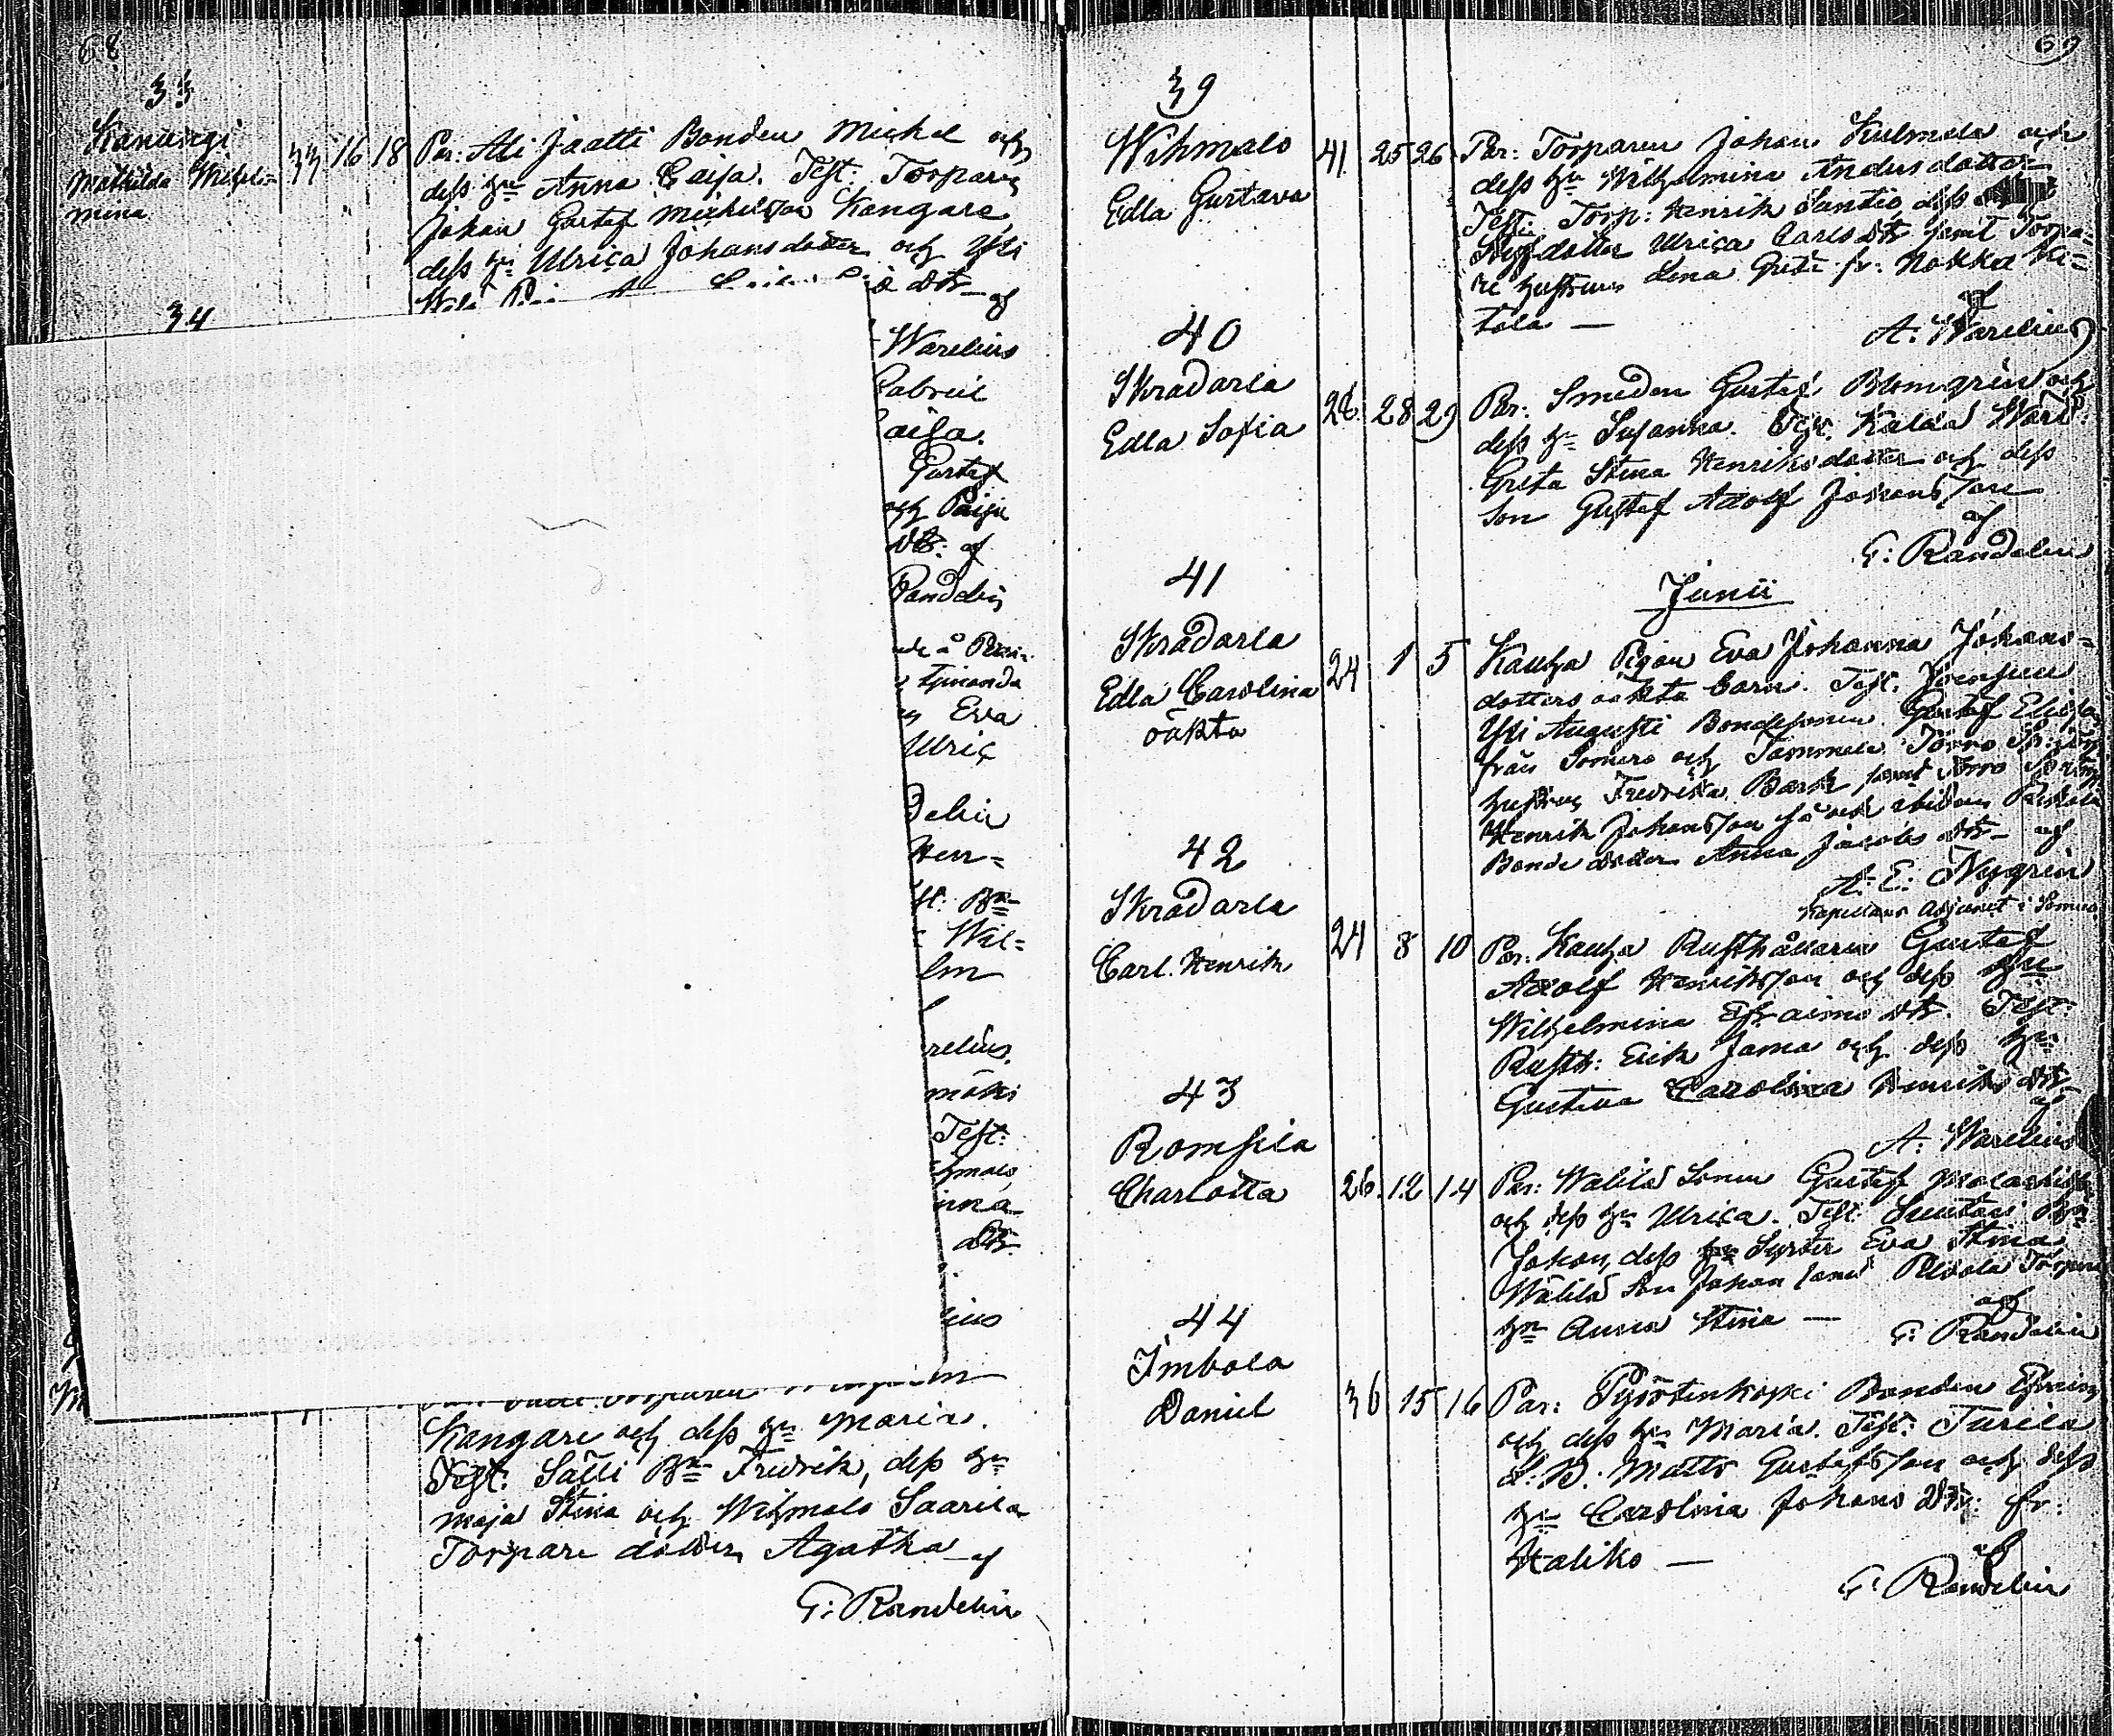 68
33
Kanungi
Mathilda Wilhel-
mina
33 16 18
Par: Ali Jaatti Bonden Michel och
dess hu Anna Caisa. Test: Torparen
Johan Gustaf Michelsson Kangare,
dess hu Ulrica Johansdotter och Yli
dtr af
34
Warelius
Gabriel
Caisa.
Gustaf
och Pigu
dtr: af
Randelin
Eva
Ulric
delin
Hen=
st: Bn
Wil=
lm
relius.
mäki
Test:
hmalo
inna
dtr
ius
Kangare och dess hu Maria.
Test: Sälli Bn Fredrik, dess hu
Maja Stina och Wihmalo Saarila
Torpare dotter Agatha af
G: Randelin
69
39
Wihmalo
Edla Gustava
41 25 26
Par: Torparen Johan Kulmala och
dess hu Wilhelmina Andersdotter
Test: Torp: Henrik Santio, dess
Styfdotter Ulrica Carls dtr samt Torpa=
re hustrun Lena Greta fr: Nokka Ki=
tola —
af
A: Warelius
40
Skradarla
Edla Sofia
28 28 29
Par: Smeden Gustaf Blomgrén och
dess hu Susanna. Test: Kalda Ward:
Greta Stina Henriksdotter och dess
Son Gustaf Adolf Johansson
af
G: Randelin
Junii
41
Skradarla
Edla Carolina
oäkta
24 1 5
Kauha Pigan Eva Johanna Johans=
dotters oäkta barn. Test: Joensuu
Yli Augusti Bondesonen Gustaf
från Somero och Tammela Torro
hustrun Fredrika Barck samt Torro
Henrik Johansson så ock
Bonde dotter Anna Jacobs dtr af
A: E: Nygrén
Kapellans Adjunct i Somero
42
Skradarla
Carl Henrik
24 8 10
Par: Kauha Rusthållaren Gustaf
Adolf Henriksson och dess hu
Wilhelmina Efraims dtr. Test:
Rusth: Erik Jama och dess hu
Gustava Carolina Henriks dtr
af
A: Warelius
43
Romsila
Charlotta
26 12 14
Par: Wälilä Sonen Gustaf
och dess hu Ulrica. Test: Suutari Bn
Johan, dess Syster Eva Stina
Wälilä Son Johan samt Torpare
hu Anna Stina —
af
G: Randelin
44
Imbola
Daniel
36 15 16
Par: Pyöstenkoski Bonden Efraim
och dess hu Maria. Test: Turila
L: B. Matts Gustafsson och dess
hu Carolina Johans dtr: fr:
Haliko —
af
G: Randelin